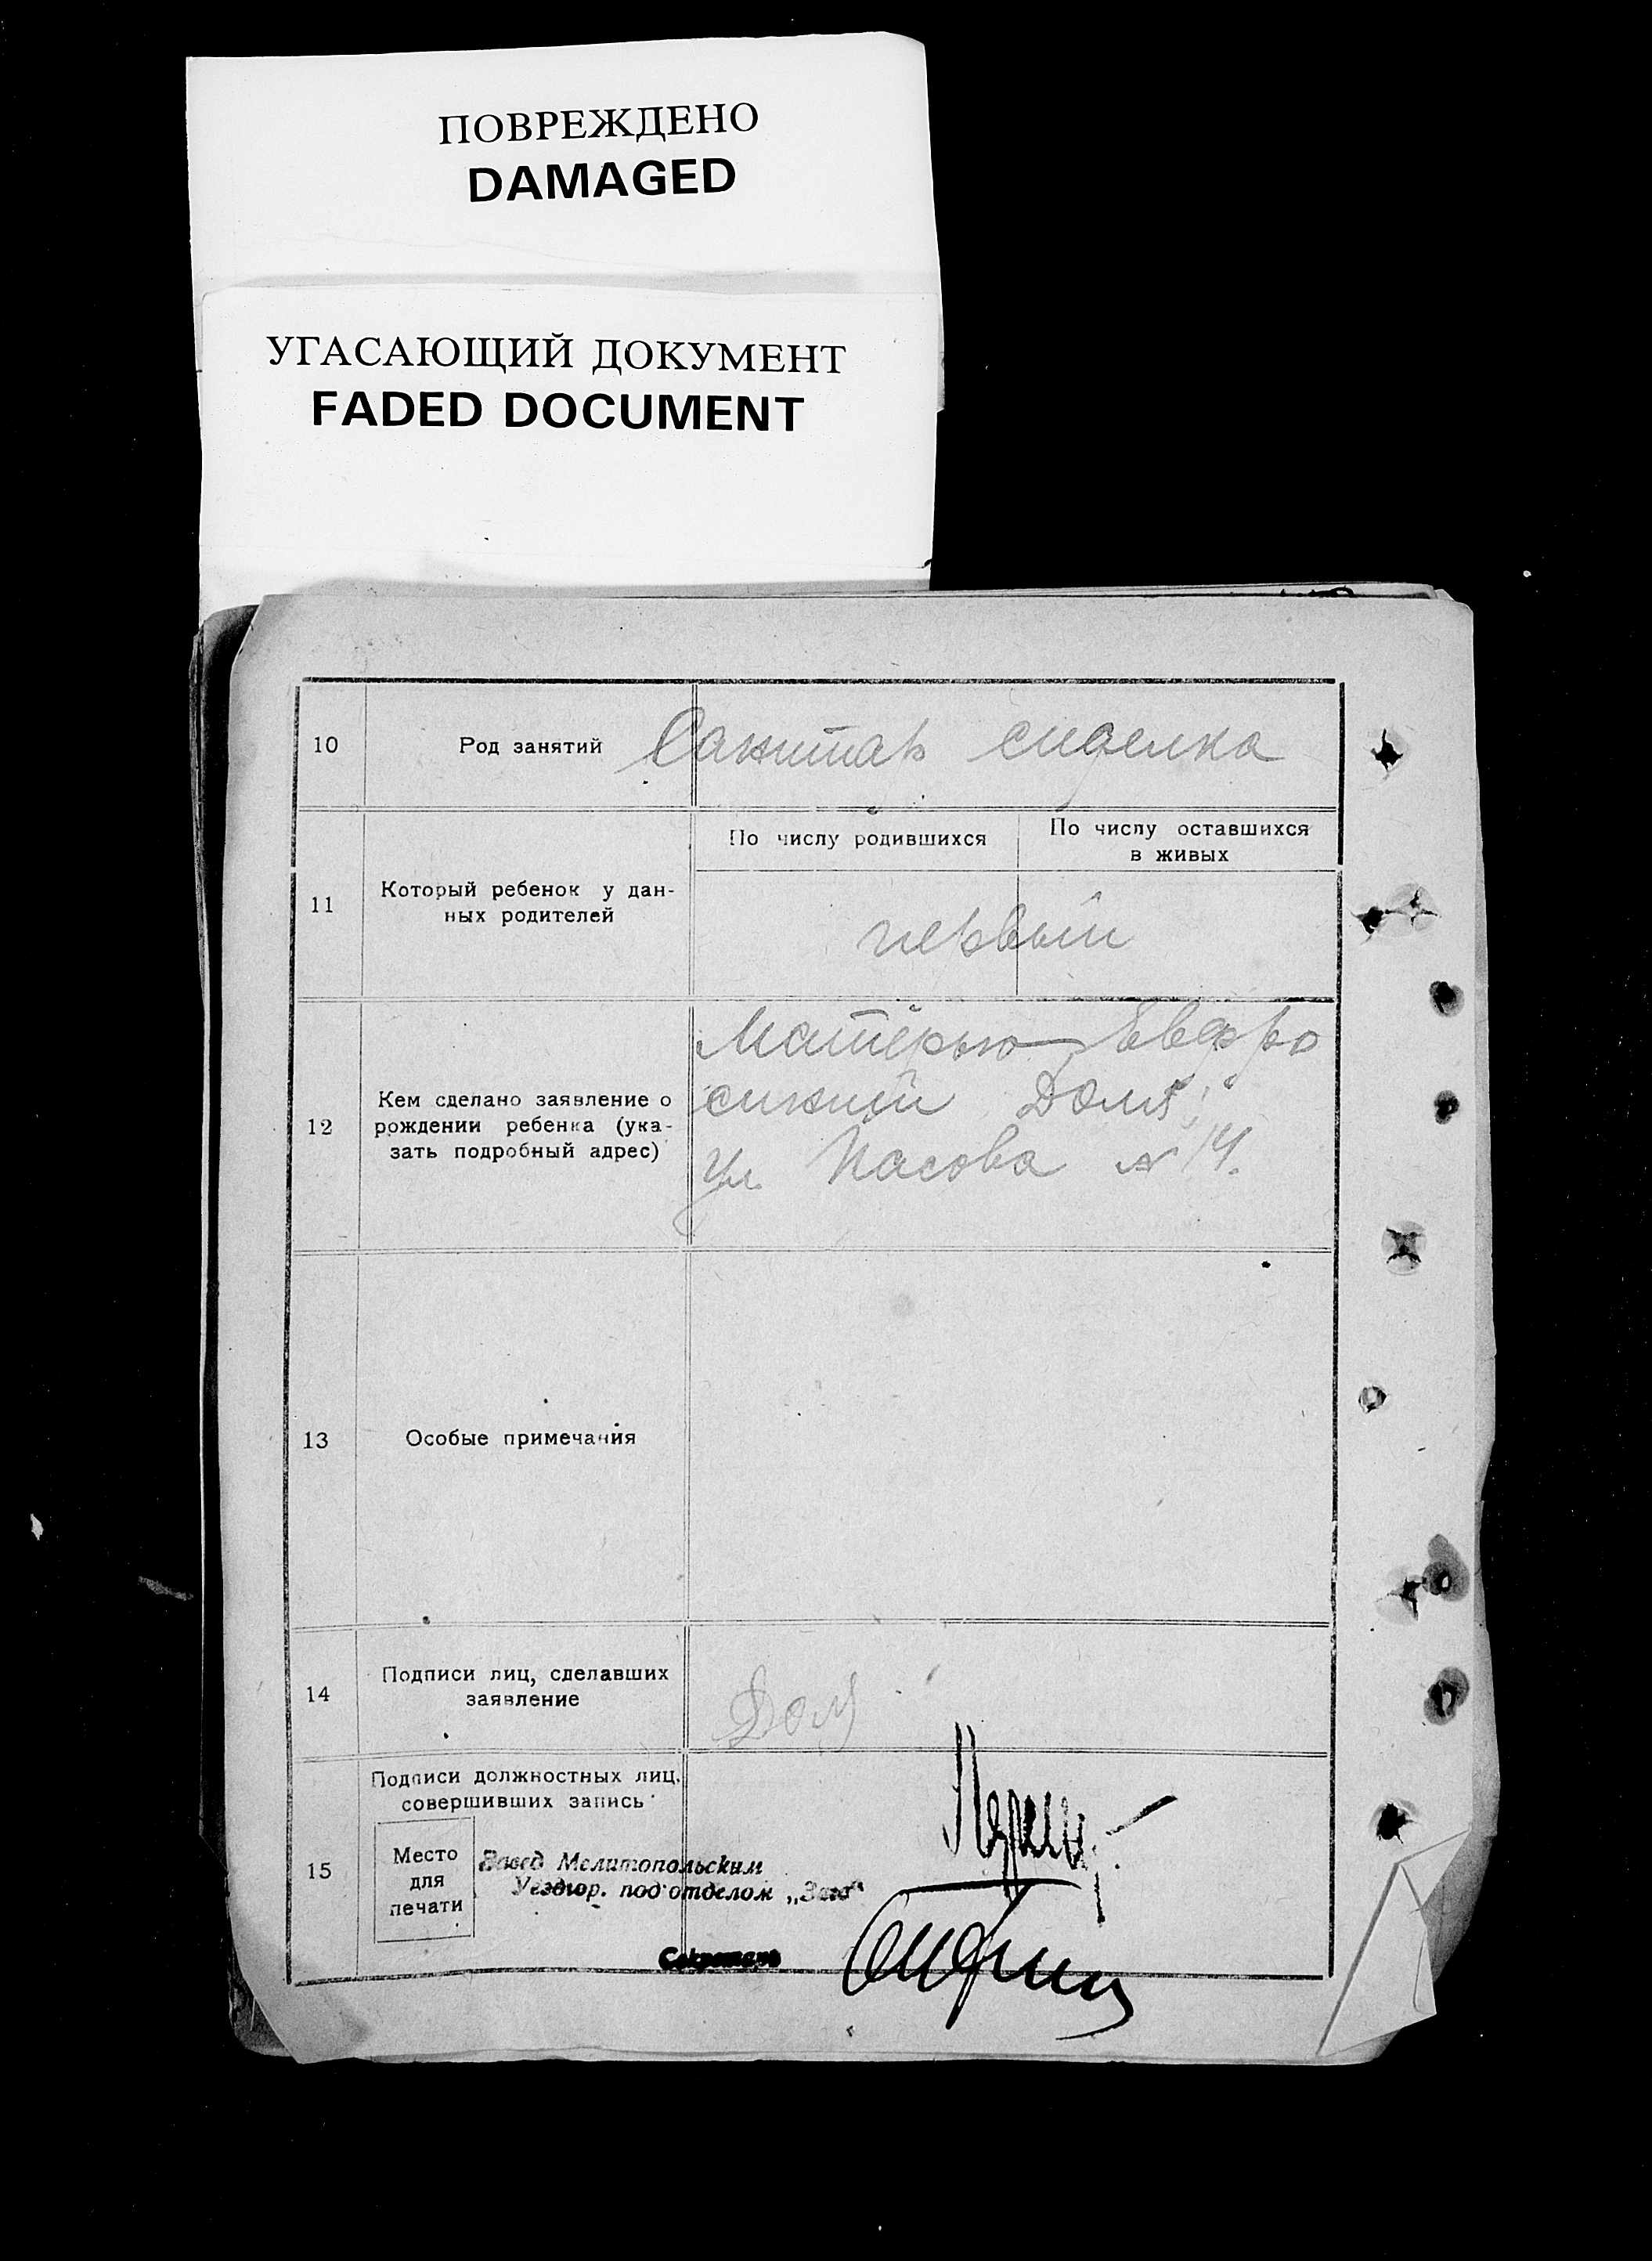 ПОВРЕЖДЕНО
DAMAGED
УГАСАЮЩИЙ ДОКУМЕНТ
FADED DOCUMENT
10
Род занятий
Санитар сиделка
11
Который ребенок у дан-
ных родителей
По числу родившихся
По числу оставшихся
в живых
первый
12
Кем сделано заявление о
рождении ребенка (ука-
зать подробный адрес)
Матерью Евфро
синией
ул. № 14.
13
Особые примечания
14
Подписи лиц, сделавших
заявление
15
Подписи должностных лиц,
совершивших запись
Место
для
печати
Завед Мелитопольским
Уездгор. подотделом „Загс“
Секретарь